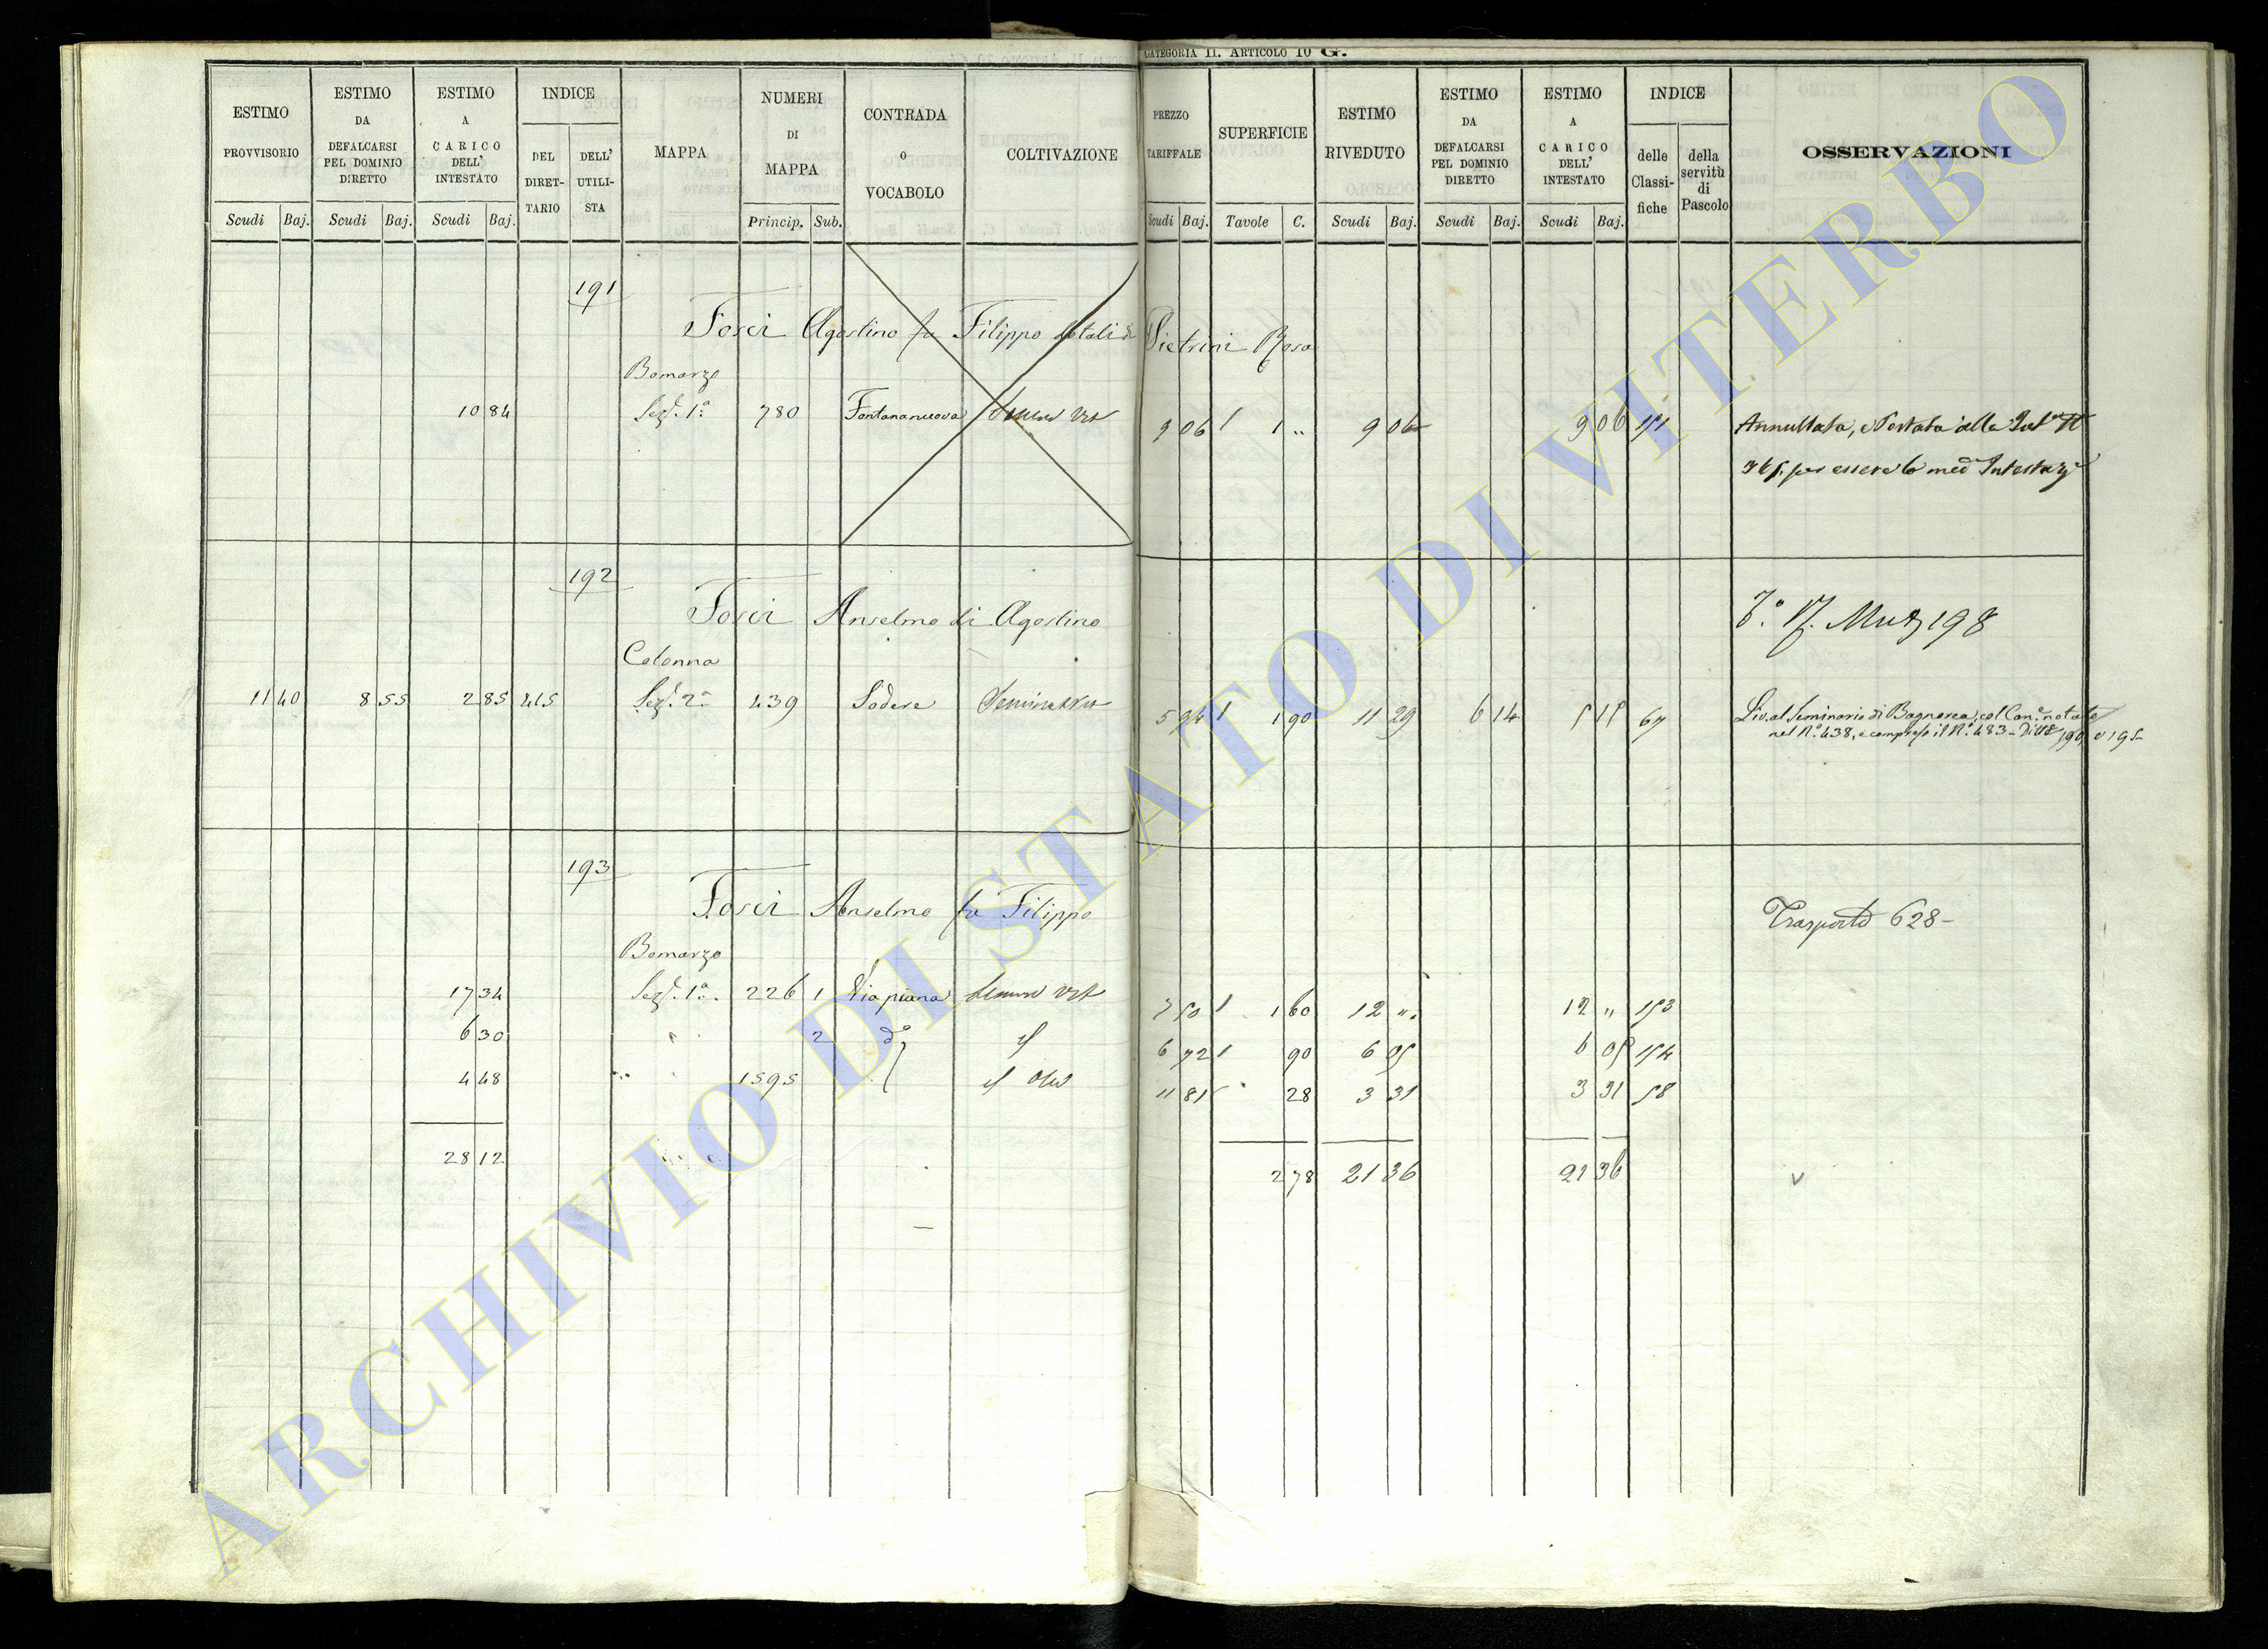 CATEGORIA II. ARTICOLO 10 G.
ESTIMO PROVVISORIO
ESTIMO DA DEFALCARSI PEL DOMINIO DIRETTO
ESTIMO A CARICO DELL' INTESTATO
INDICE
DEL DIRET-TARIO
DELL' UTILI-STA
MAPPA
NUMERI DI MAPPA
CONTRADA O VOCABOLO
COLTIVAZIONE
PREZZO TARIFFALE
SUPERFICIE
ESTIMO RIVEDUTO
ESTIMO DA DEFALCARSI PEL DOMINIO DIRETTO
ESTIMO A CARICO DELL' INTESTATO
INDICE
delle Classi-fiche
della servitù di Pascolo
OSSERVAZIONI
Scudi Baj. Scudi Baj. Scudi Baj. Princip. Sub. Scudi Baj. Tavole C. Scudi Baj. Scudi Baj. Scudi Baj.
191
Fosci Agostino fu Filippo Pietrini Rosa
Bomarzo
10 84 Sez. 1ª 780 Fontananuova 9 06 1 „ 9 06 9 06 151 Annullata, e Portata alla
per essere la med Intestaz
192
Fosci Anselmo di Agostino
Mut 198
Colonna
11 40 8 55 2 85 415 Sez. 2ª 439 Sodere Seminativo 5 94 1 90 11 29 6 14 5 15 67 Liv. al Seminario di Bagnorea, col Can.e notato
nel N.º 438, e compreso il N.º 483 - 190, e 195
193
Fosci Anselmo fu Filippo
Trasporto 628-
Bomarzo
17 34 Sez. 1ª 226 1 Via piana 7 50 1 60 12 „ 12 „ 153
6 30 2 dº 6 72 90 6 05 6 05 154
4 48 1595 11 81 28 3 31 3 31 58
28 12 2 78 21 36 21 36
ARCHIVIO DI STATO DI VITERBO